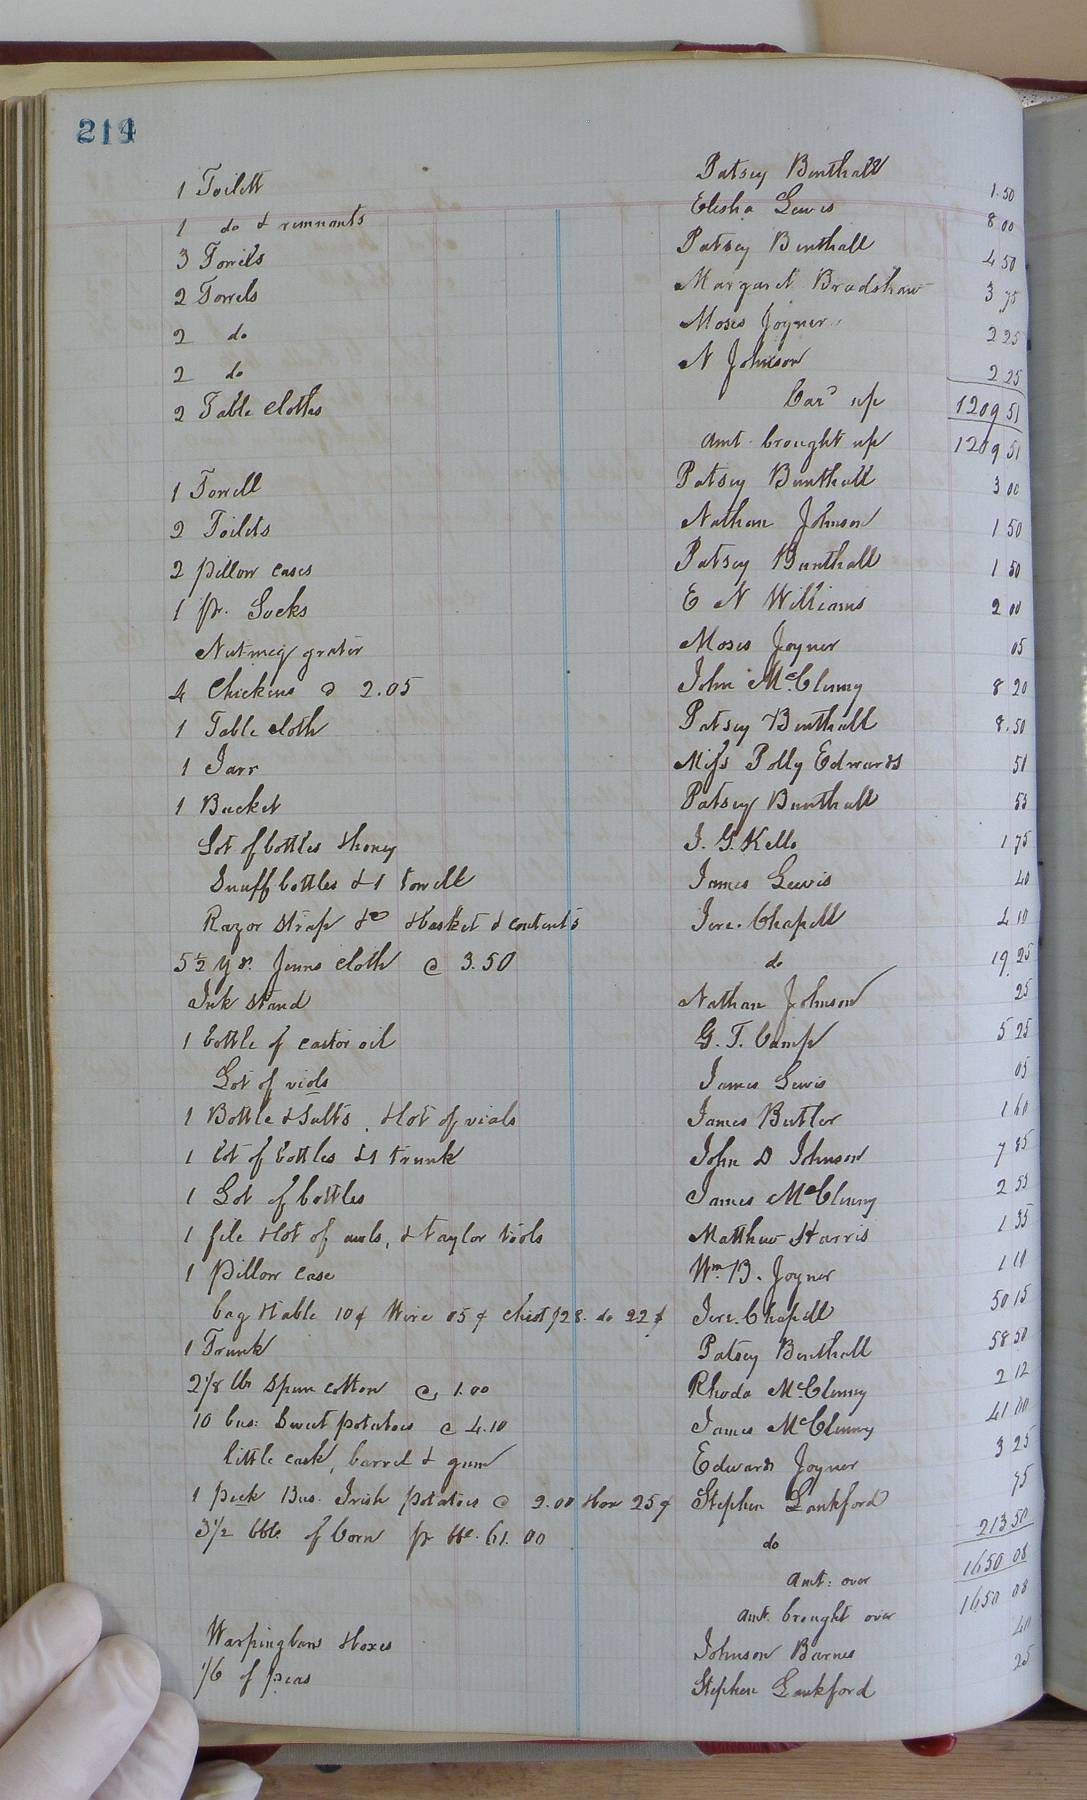 214
1 Toilett Patsey Benthall 1.50
1 do & remnants Elisha Lewis 8 00
3 Towels Patsey Benthall 4 50
2 Towels Margaret Bradshaw 3 75
2 do Moses Joyner 2 25
2 do N Johnson 2 25
2 Table cloths Card up 1209 51
amt brought up 1209 51
1 Towell Patsey Benthall 3 00
2 Toilets Nathan Johnson 1 50
2 pillow cases Patsey Benthall 1 50
1 pr. Socks E N Williams 2 00
Nutmeg grater Moses Joyner 05
4 Chickens @ 2.05 John McClenny 8 20
1 Table cloth Patsey Benthall 8.50
1 Jarr Miss Polly Edwards 51
1 Bucket Patsey Benthall 55
Lot of bottles & honey J. G. Kello 1 75
Snuff bottles & 1 towell James Lewis 40
Razor strap &c & basket & contents Jere. Chapell 2 10
5½ yds. Jeans cloth @ 3.50 do 19 25
Ink stand Nathan Johnson 25
1 bottle of castor oil G. T. Camp 5 25
Lot of viols James Lewis 05
1 Bottle & Salts, & lot of vials James Butler 1 60
1 lot of bottles & 1 trunk John D Johnson 7 85
1 Lot of bottles James McClenny 2 55
1 file & lot of awls, & taylor tools Matthew Harris 1 35
1 Pillow case Wm. B. Joyner 1 10
bag & table 10¢ Wire 05¢ chest 28. do 22¢ Jere. Chapell 50 15
1 Trunk Patsey Benthall 58 50
2 1/8 lbs spun cotton @ 1.00 Rhoda McClenny 2 12
10 bus: Sweet potatoes @ 4.10 James McClenny 41 00
little cask, barrel & gum Edward Joyner 3 25
1 peck Bus. Irish potatoes @ 2.00 & box 25¢ Stephen Lankford 75
3 1/2 bbls of Corn pr bbl. 61.00 do 213 50
amt: over 1650 08
amt. brought over 1650 08
Warpingbars & boxes Johnson Barnes 40
1/6 of peas Stephen Lankford 25